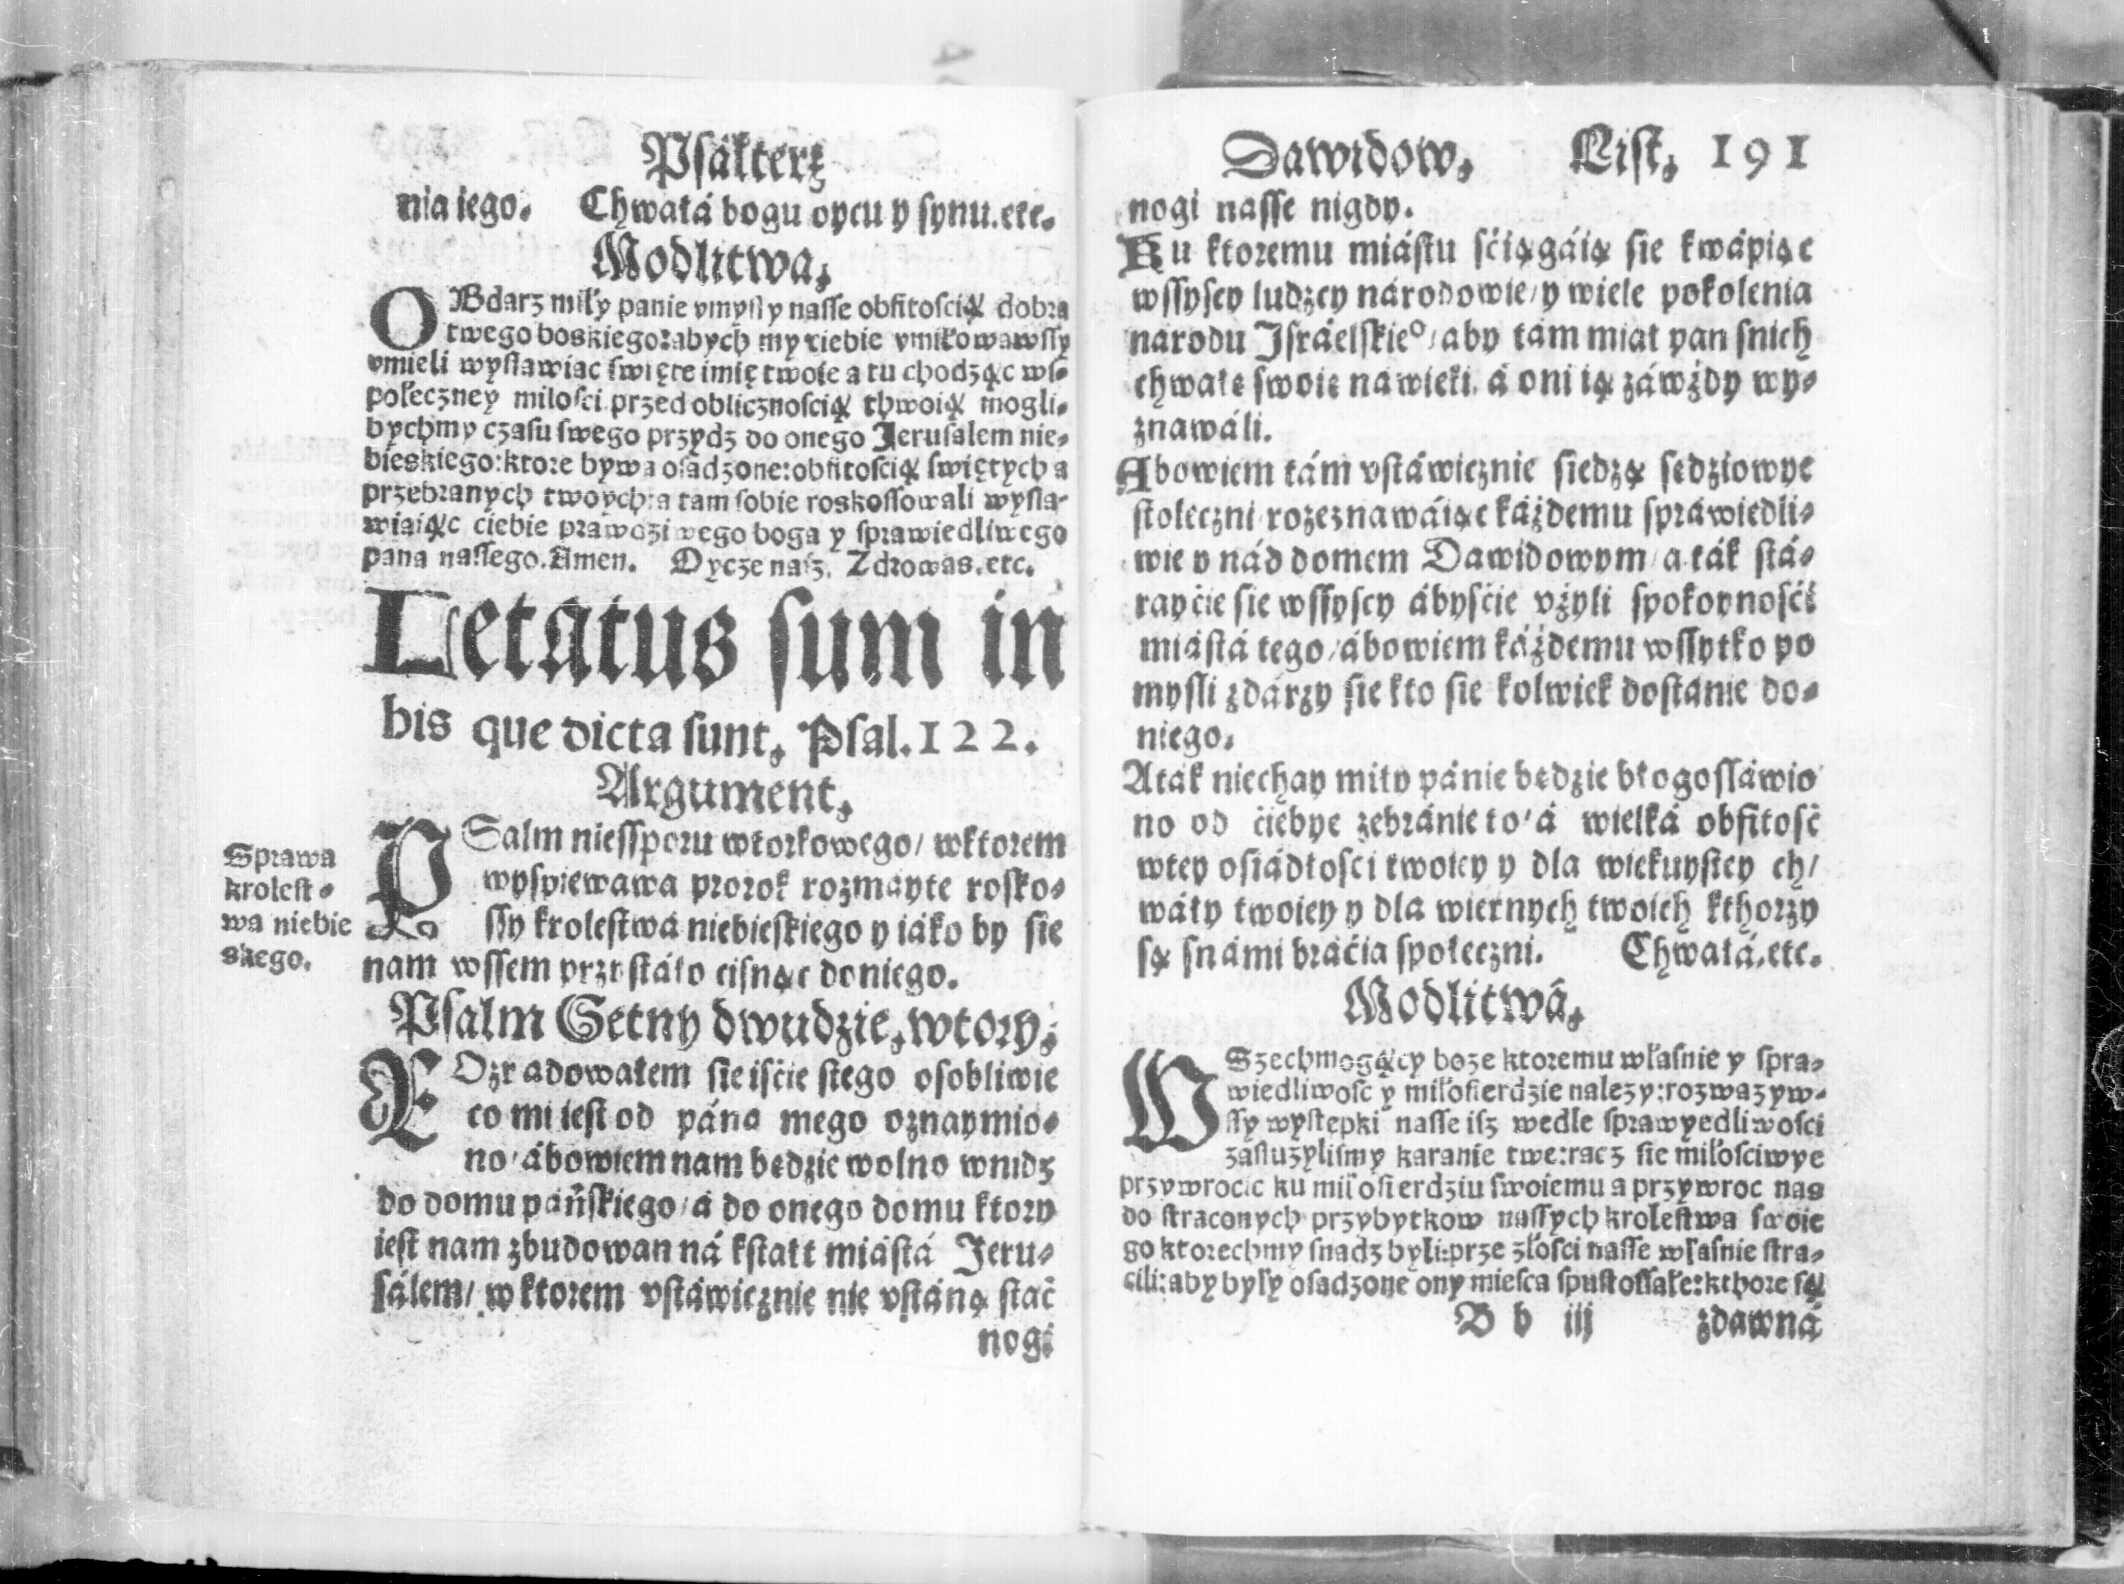 Psałterz
nia iego. Chwałá bogu oycu y synu.etc.
Modlitwa,
OBdarz miły panie vmysły nasse obfitoscią dobra
twego boskiego:abych my ciebie vmiłowawssy
vmieli wysławiac swięte imię twoie a tu chodząc ws-
połeczney milosci przed oblicznoscią thwoią mogli-
bychmy czasu swego przydz do onego Jerusalem nie-
bieskiego:ktore bywa osadzone:obfitoscią swiętych a
przebranych twoych:a tam sobie roskossowali wysla-
wiaiąc ciebie prawdziwego boga y sprawiedliwego
pana nassego.Amen. Oycze nasz. Zdrowas.etc.
Letatus sum in
his que dicta sunt, Psal.122.
Argument,
PSalm niessporu wtorkowego/ wktorem
wyspiewawa prorok rozmayte rosko-
ssy krolestwá niebieskiego y iáko by sie
nam wssem przystáło cisnąc doniego.
Sprawa
krolest-
wa niebie
skego.
Psalm Setny dwudzie,wtory,
ROzradowałem sie iście stego osobliwie
co mi iest od páná mego oznaymio-
no/ábowiem nam będzie wolno wnidz
do domu páńskiego/á do onego domu ktory
iest nam zbudowan ná kstałt miástá Jeru-
sálem/ w ktorem vstáwicznie nie vstáną stać
nogi
Dawidow, List, 191
nogi nasse nigdy.
Ku ktoremu miástu śćiągáią sie kwápiąc
wssyscy ludzcy národowie/y wiele pokolenia
narodu Jsráelskieº/aby tám miał pan snich
chwałę swoię nawieki á oni ią záwżdy wy-
znawáli.
Abowiem tám vstáwicznie siedzą sędziowye
stoleczni rozeznawáiąc káżdemu spráwiedli-
wie y nád domem Dawidowym/a ták stá-
rayćie sie wssyscy ábyśćie vżyli spokoynośći
miástá tego/ábowiem káżdemu wssytko po
mysli zdárzy sie kto sie kolwiek dostánie do-
niego.
Atak niechay miły pánie będzie błogosláwio
no od ćiebye zebránie to/á wielká obfitość
wtey osiádłosci twoiey y dla wiekuystey ch/
wáły twoiey y dla wiernych twoich kthorzy
są snámi bráćia społeczni. Chwałá.etc.
Modlitwá,
WSzechmogący boze ktoremu własnie y spra-
wiedliwosc y miłosierdzie nalezy:rozwazyw-
ssy wystepki nasse isz wedle sprawyedliwosci
zasluzylismy karanie twe:racz sie miłosciwye
przywrocic ku miłosierdziu swoiemu a przywroc nas
do straconych przybytkow nassych krolestwa swoie
go ktorechmy snadz byli:prze złosci nasse własnie stra-
cili:aby były osadzone ony miesca spustossałe:kthore są
B b iij zdawná